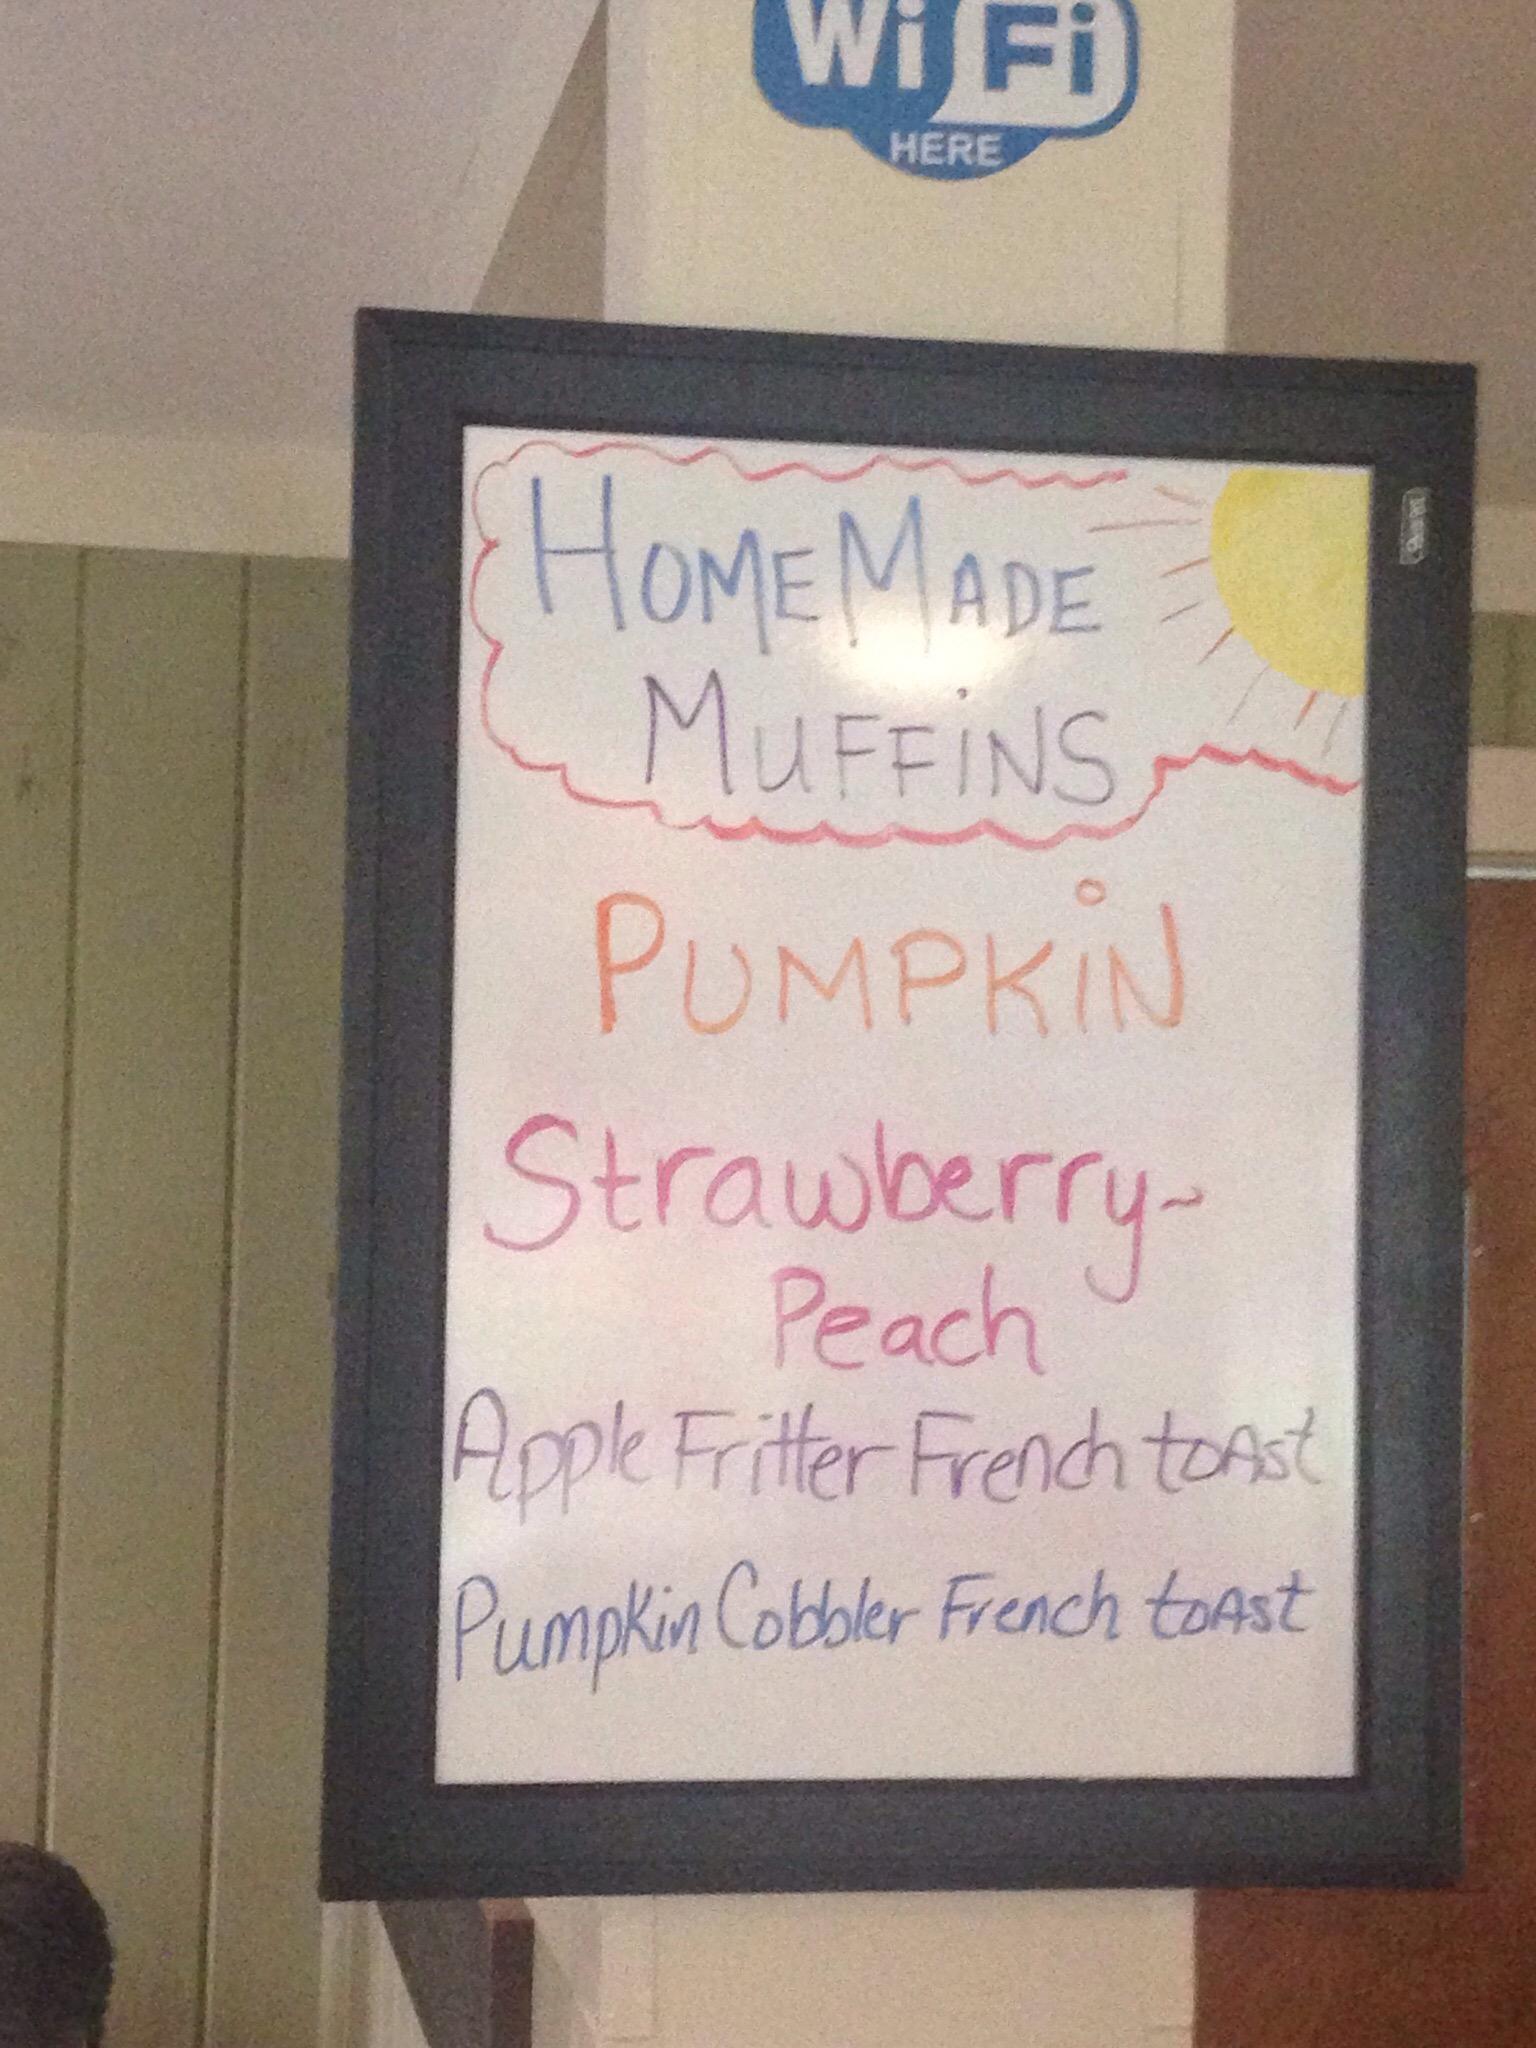 WiFi
HERE
HOMEMADE
MUFFiNS
PUMPKiN
Strawberry-
Peach
Apple Fritter French toAst
Pumpkin Cobbler French toAst
Quartet